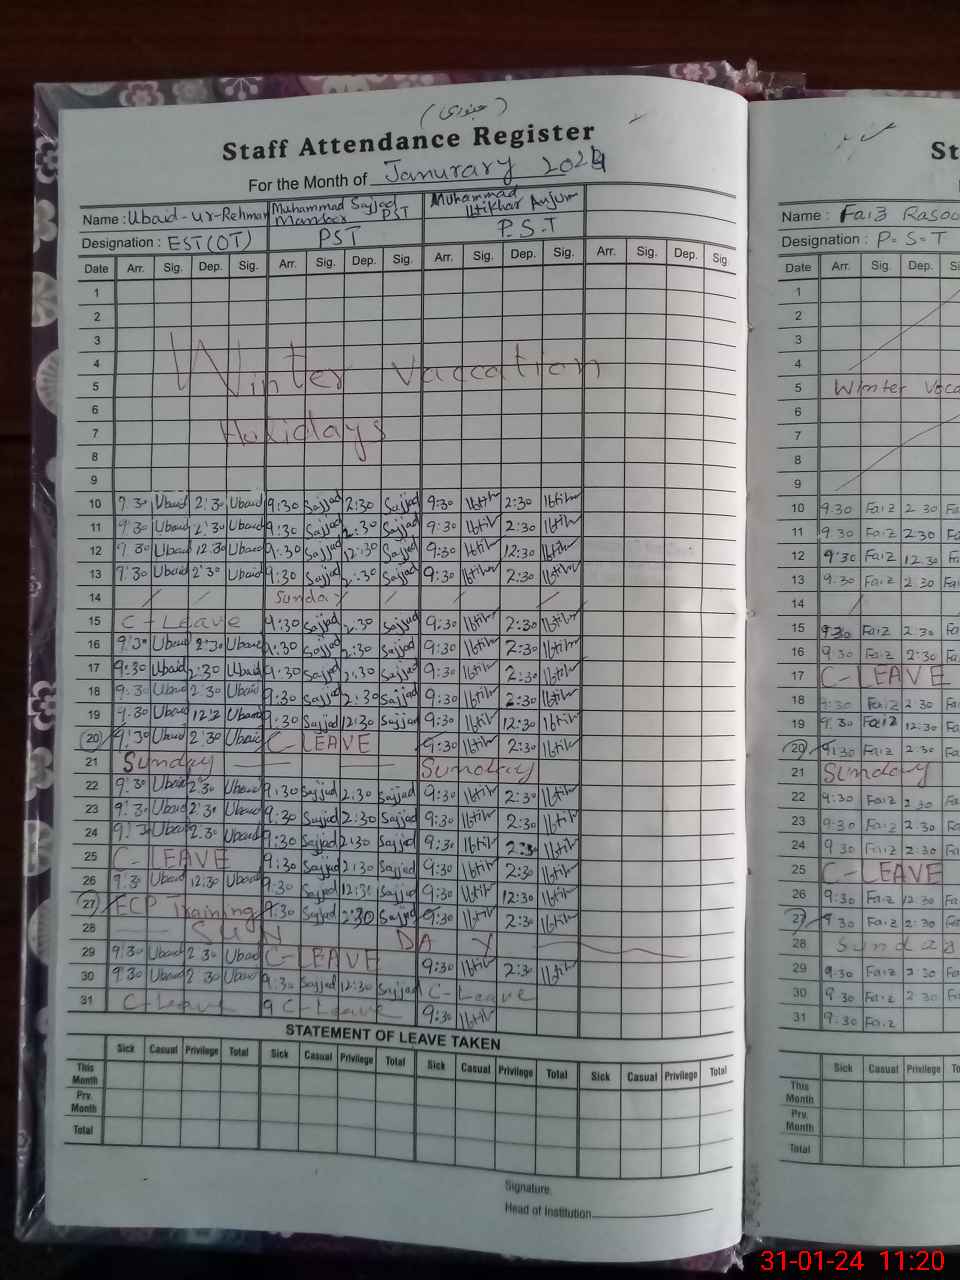 (جنوری)
Staff Attendance Register
For the Month of Janurary 2024
Name : Ubaid-ur-Rehman Muhammad Sajjad Mansoor PST Muhammad Iftikhar Anjum
Designation : EST(OT) PST P.S.T
Date Arr. Sig. Dep. Sig. Arr. Sig. Dep. Sig. Arr. Sig. Dep. Sig. Arr. Sig. Dep. Sig.
1
2
3
4 Winter Vaccation
5
6
7 Holidays
8
9
10 9:30 Ubaid 2:30 Ubaid 9:30 Sajjad 2:30 Sajjad 9:30 Iftikhr 2:30 Iftikhr
11 9:30 Ubaid 2:30 Ubaid 9:30 Sajjad 2:30 Sajjad 9:30 Iftikhr 2:30 Iftikhr
12 9:30 Ubaid 12:30 Ubaid 9:30 Sajjad 12:30 Sajjad 9:30 Iftikhr 12:30 Iftikhr
13 9:30 Ubaid 2:30 Ubaid 9:30 Sajjad 2:30 Sajjad 9:30 Iftikhr 2:30 Iftikhr
14 Sunday
15 C-Leave 9:30 Sajjad 2:30 Sajjad 9:30 Iftikhr 2:30 Iftikhr
16 9:30 Ubaid 2:30 Ubaid 9:30 Sajjad 2:30 Sajjad 9:30 Iftikhr 2:30 Iftikhr
17 9:30 Ubaid 2:30 Ubaid 9:30 Sajjad 2:30 Sajjad 9:30 Iftikhr 2:30 Iftikhr
18 9:30 Ubaid 2:30 Ubaid 9:30 Sajjad 2:30 Sajjad 9:30 Iftikhr 2:30 Iftikhr
19 9:30 Ubaid Ubaid 9:30 Sajjad 12:30 Sajjad 9:30 Iftikhr 12:30 Iftikhr
20 9:30 Ubaid 2:30 Ubaid C-LEAVE 9:30 Iftikhr 2:30 Iftikhr
21 Sunday Sunday
22 9:30 Ubaid 2:30 Ubaid 9:30 Sajjad 2:30 Sajjad 9:30 Iftikhr 2:30 Iftikhr
23 9:30 Ubaid 2:30 Ubaid 9:30 Sajjad 2:30 Sajjad 9:30 Iftikhr 2:30 Iftikhr
24 9:30 Ubaid 2:30 Ubaid 9:30 Sajjad 2:30 Sajjad 9:30 Iftikhr 2:30 Iftikhr
25 C-LEAVE 9:30 Sajjad 2:30 Sajjad 9:30 Iftikhr 2:30 Iftikhr
26 9:30 Ubaid 12:30 Ubaid 9:30 Sajjad 12:30 Sajjad 9:30 Iftikhr 12:30 Iftikhr
27 ECP Training 9:30 Sajjad 2:30 Sajjad 9:30 Iftikhr 2:30 Iftikhr
28 SUN DAY
29 9:30 Ubaid 2:30 Ubaid C-LEAVE 9:30 Iftikhr 2:30 Iftikhr
30 9:30 Ubaid 2:30 Ubaid 9:30 Sajjad 12:30 Sajjad C-Leave
31 C-Leave 9 C-Leave 9:30 Iftikhr
STATEMENT OF LEAVE TAKEN
Sick Casual Privilege Total Sick Casual Privilege Total Sick Casual Privilege Total Sick Casual Privilege Total
This Month
Prv. Month
Total
Signature
Head of Institution
St
Name : Faiz Rasoo
Designation : P-S-T
Date Arr. Sig. Dep. Si
1
2
3
4
5 Winter Vaca
6
7
8
9
10 9:30 Faiz 2:30 Fa
11 9:30 Faiz 2:30 Fa
12 9:30 Faiz 12:30 Fa
13 9:30 Faiz 2:30 Fa
14
15 9:30 Faiz 2:30 Fa
16 9:30 Faiz 2:30 Fa
17 C-LEAVE
18 9:30 Faiz 2:30 Fa
19 9:30 Faiz 12:30 Fa
20 9:30 Faiz 2:30 Fa
21 Sunday
22 9:30 Faiz 2:30 Fa
23 9:30 Faiz 2:30 Fa
24 9:30 Faiz 2:30 Fa
25 C-LEAVE
26 9:30 Faiz 12:30 Fa
27 9:30 Faiz 2:30 Fa
28 Sunday
29 9:30 Faiz 2:30 Fa
30 9:30 Faiz 2:30 Fa
31 9:30 Faiz
Sick Casual Privilege To
This Month
Prv. Month
Total
31-01-24 11:20